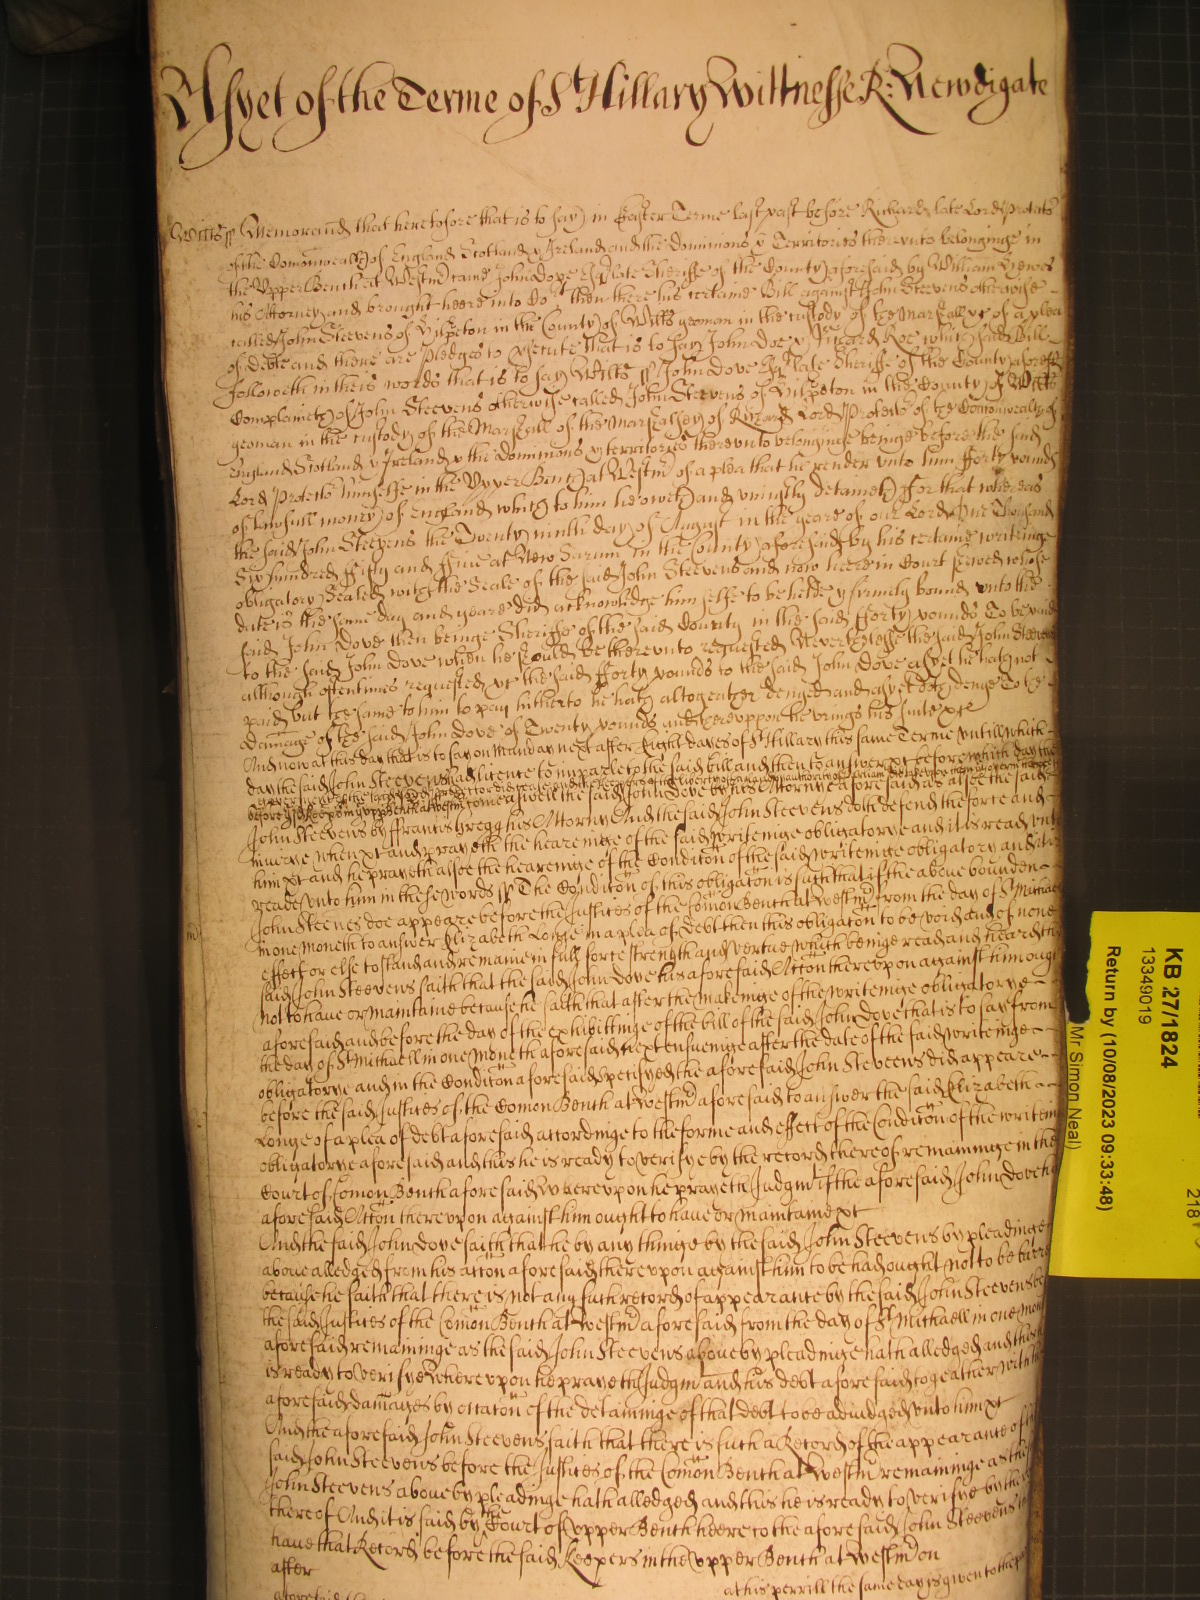 Asyet of the Terme of St Hillary Wittnesse R: Newdigate
Wiltes ss Memorand that heretofore that is to say in Easter Terme last past before Richard late Lord Protector
of the Comonwealth of England Scotland & Ireland and the dominions & Territories therevnto belonginge in
the Vpper Bench at Westm came John Dove Esq late Sheriffe of the County aforesaid by William
his Attorney and brought heere into Cort then there his certaine Bill against John Steevens otherwise
called John Steevens of in the County of Wiltes yeoman in the custody of the Marshall &c of a plea
of debte and there are pledges to p'secute that is to say John Doe & Richard Roe which said Bill
followeth in theis words that is to say Wiltes ss John Dove Esq late Sheriffe of the County aforesd
Complaineth of John Steevens otherwise called John Steevens of in the County of Wiltes
yeoman in the custody of the Marshall of the Marshallsey of Richard Lord Protector of the Comonwealth of
England Scotland & Ireland & the dominions & territories therevnto belonginge beinge before the said
Lord Protector himselfe in the Vpper Bench at Westm of a plea that he render vnto him fforty pounds
of lawfull money of England which to him he oweth and vniustly detaineth ffor that whereas
the said John Steevens the Twenty ninth day of August in the yeare of our Lord One Thousand
Six hundred ffifty and ffive at New Sarum in the County aforesaid by his certaine writeinge
obligatory Sealed with the Seale of the said John Steevens and now heere in Court shewed whose
date is the same day and yeare did acknowledge himselfe to be helde & firmely bound vnto the
said John Dove then beinge Sheriffe of the said County in the said fforty pounds To be paid
to the said John Dove when he should be therevnto requested Neverthelesse the said John Steevens
although oftentimes requested &c the said fforty pounds to the said John Dove asyet he hath not
paid but the same to him to pay hitherto he hath altogeather denyed and asyet doth denye To the
damage of the said John Dove of Twenty pounds and therevppon he brings his suite &c
And now at this day that is to say on Munday next after Eight dayes of St Hillary this same Terme vntill which
day the said John Steevens had licence to imparle to the said bill and then to answer &c before which day the
before ye said Keeprs in ye vpper bench at westm come aswell the said John Dove by his Attorny aforesaid as alsoe the said
John Steevens by ffrancis Gregg his Attorny And the said John Steevens doth defend the force and
iniurye when &c and prayeth the heareinge of the said writeinge obligatorye and it is read vnto
him &c and he prayeth alsoe the heareinge of the Condicon of the said writeinge obligatory and it is
reade vnto him in these words ss The Condicon of this obligacon is such that if the above bounden
John Steevens doe appeare before the Justices of the Comon Bench at Westm from the day of St Michaell
in one moneth to answer Elizabeth Longe in a plea of debt then this obligacon to be void and of none
effect or else to stand and remaine in full force strength and vertue which beinge read and heard the
said John Steevens saith that the said John Dove his aforesaid Accon therevpon against him ought
not to have or maintaine because he saith that after the makeinge of the writeinge obligatorye
aforesaid and before the day of the exhibittinge of the bill of the said John Dove that is to say from
the day of St Michaell in one moneth aforesaid next ensueinge after the date of the said writeinge
obligatorye and in the Condicon aforesaid specifyed the aforesaid John Steevens did appeare
before the said Justices of the Comon Bench at Westm aforesaid to answer the said Elizabeth
Longe of a plea of debt aforesaid accordinge to the forme and effect of the Condicon of the writeinge
obligatorye aforesaid and this he is ready to verifye by the record thereof remaininge in the
Court of Comon Bench aforesaid Wherevpon he prayeth Judgmt if the aforesaid John Dove his
aforesaid Accon therevpon against him ought to have or maintaine &c
And the said John Dove saith that he by any thinge by the said John Steevens by pleadinge
above alledged from his accon aforesaid therevpon against him to be had ought not to be barred
because he saith that there is not any such record of appearance by the said John Steevens before
the said Justices of the Comon Bench at Westm aforesaid from the day of St Michaell in one moneth
aforesaid remaininge as the said John Steevens above by pleadinge hath alledged and this he
is ready to verifye Wherevpon he prayeth Judgmt and his debt aforesaid togeather with the
aforesaid damages by occacon of the detaininge of that debt to be adiudged vnto him &c
And the aforesaid John Steevens saith that there is such a Record of the appearance of the
said John Steevens before the Justices of the Comon Bench at Westm remaininge as the said
John Steevens above by pleadinge hath alledged and this he is ready to verifye by the
thereof And it is said by the Court of vpper Bench heere to the aforesaid John Steevens that he
have that Record before the said Keepers in the vpper Bench at Westm on
after
at his perrill the same day is given to the
KB 27/1824
13349019
Return by (10/08/2023 09:33:48)
Mr Simon Neal)
218